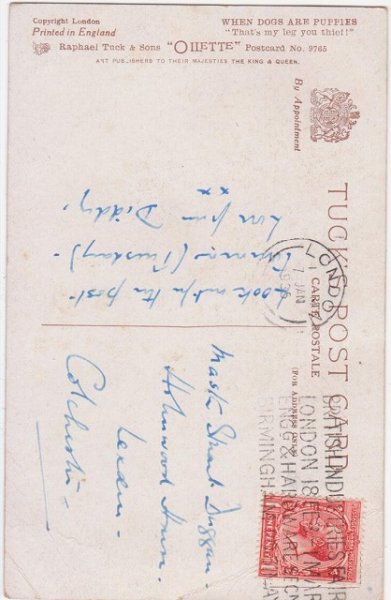 Copyright London
Printed in England
Raphael Tuck & Sons "OILETTE" Postcard No. 9765
ART PUBLISHERS TO THEIR MAJESTIES THE KING & QUEEN.
WHEN DOGS ARE PUPPIES
"That's my leg you thief!"
By Appointment
TUCK'S POST CARD
CARTE POSTALE
(FOR ADDRESS ONLY)
LONDON
7 JAN
BRITISH INDUSTRIES FAIR
LONDON 18
ENGG & HARDWARE SECN
BIRMINGHAM
Look out for the post
(Tuesday)
Love from Diddy.
xx
Master Stuart Duggan.
Holmwood House.
Lexden.
Colchester.
ONE PENNY